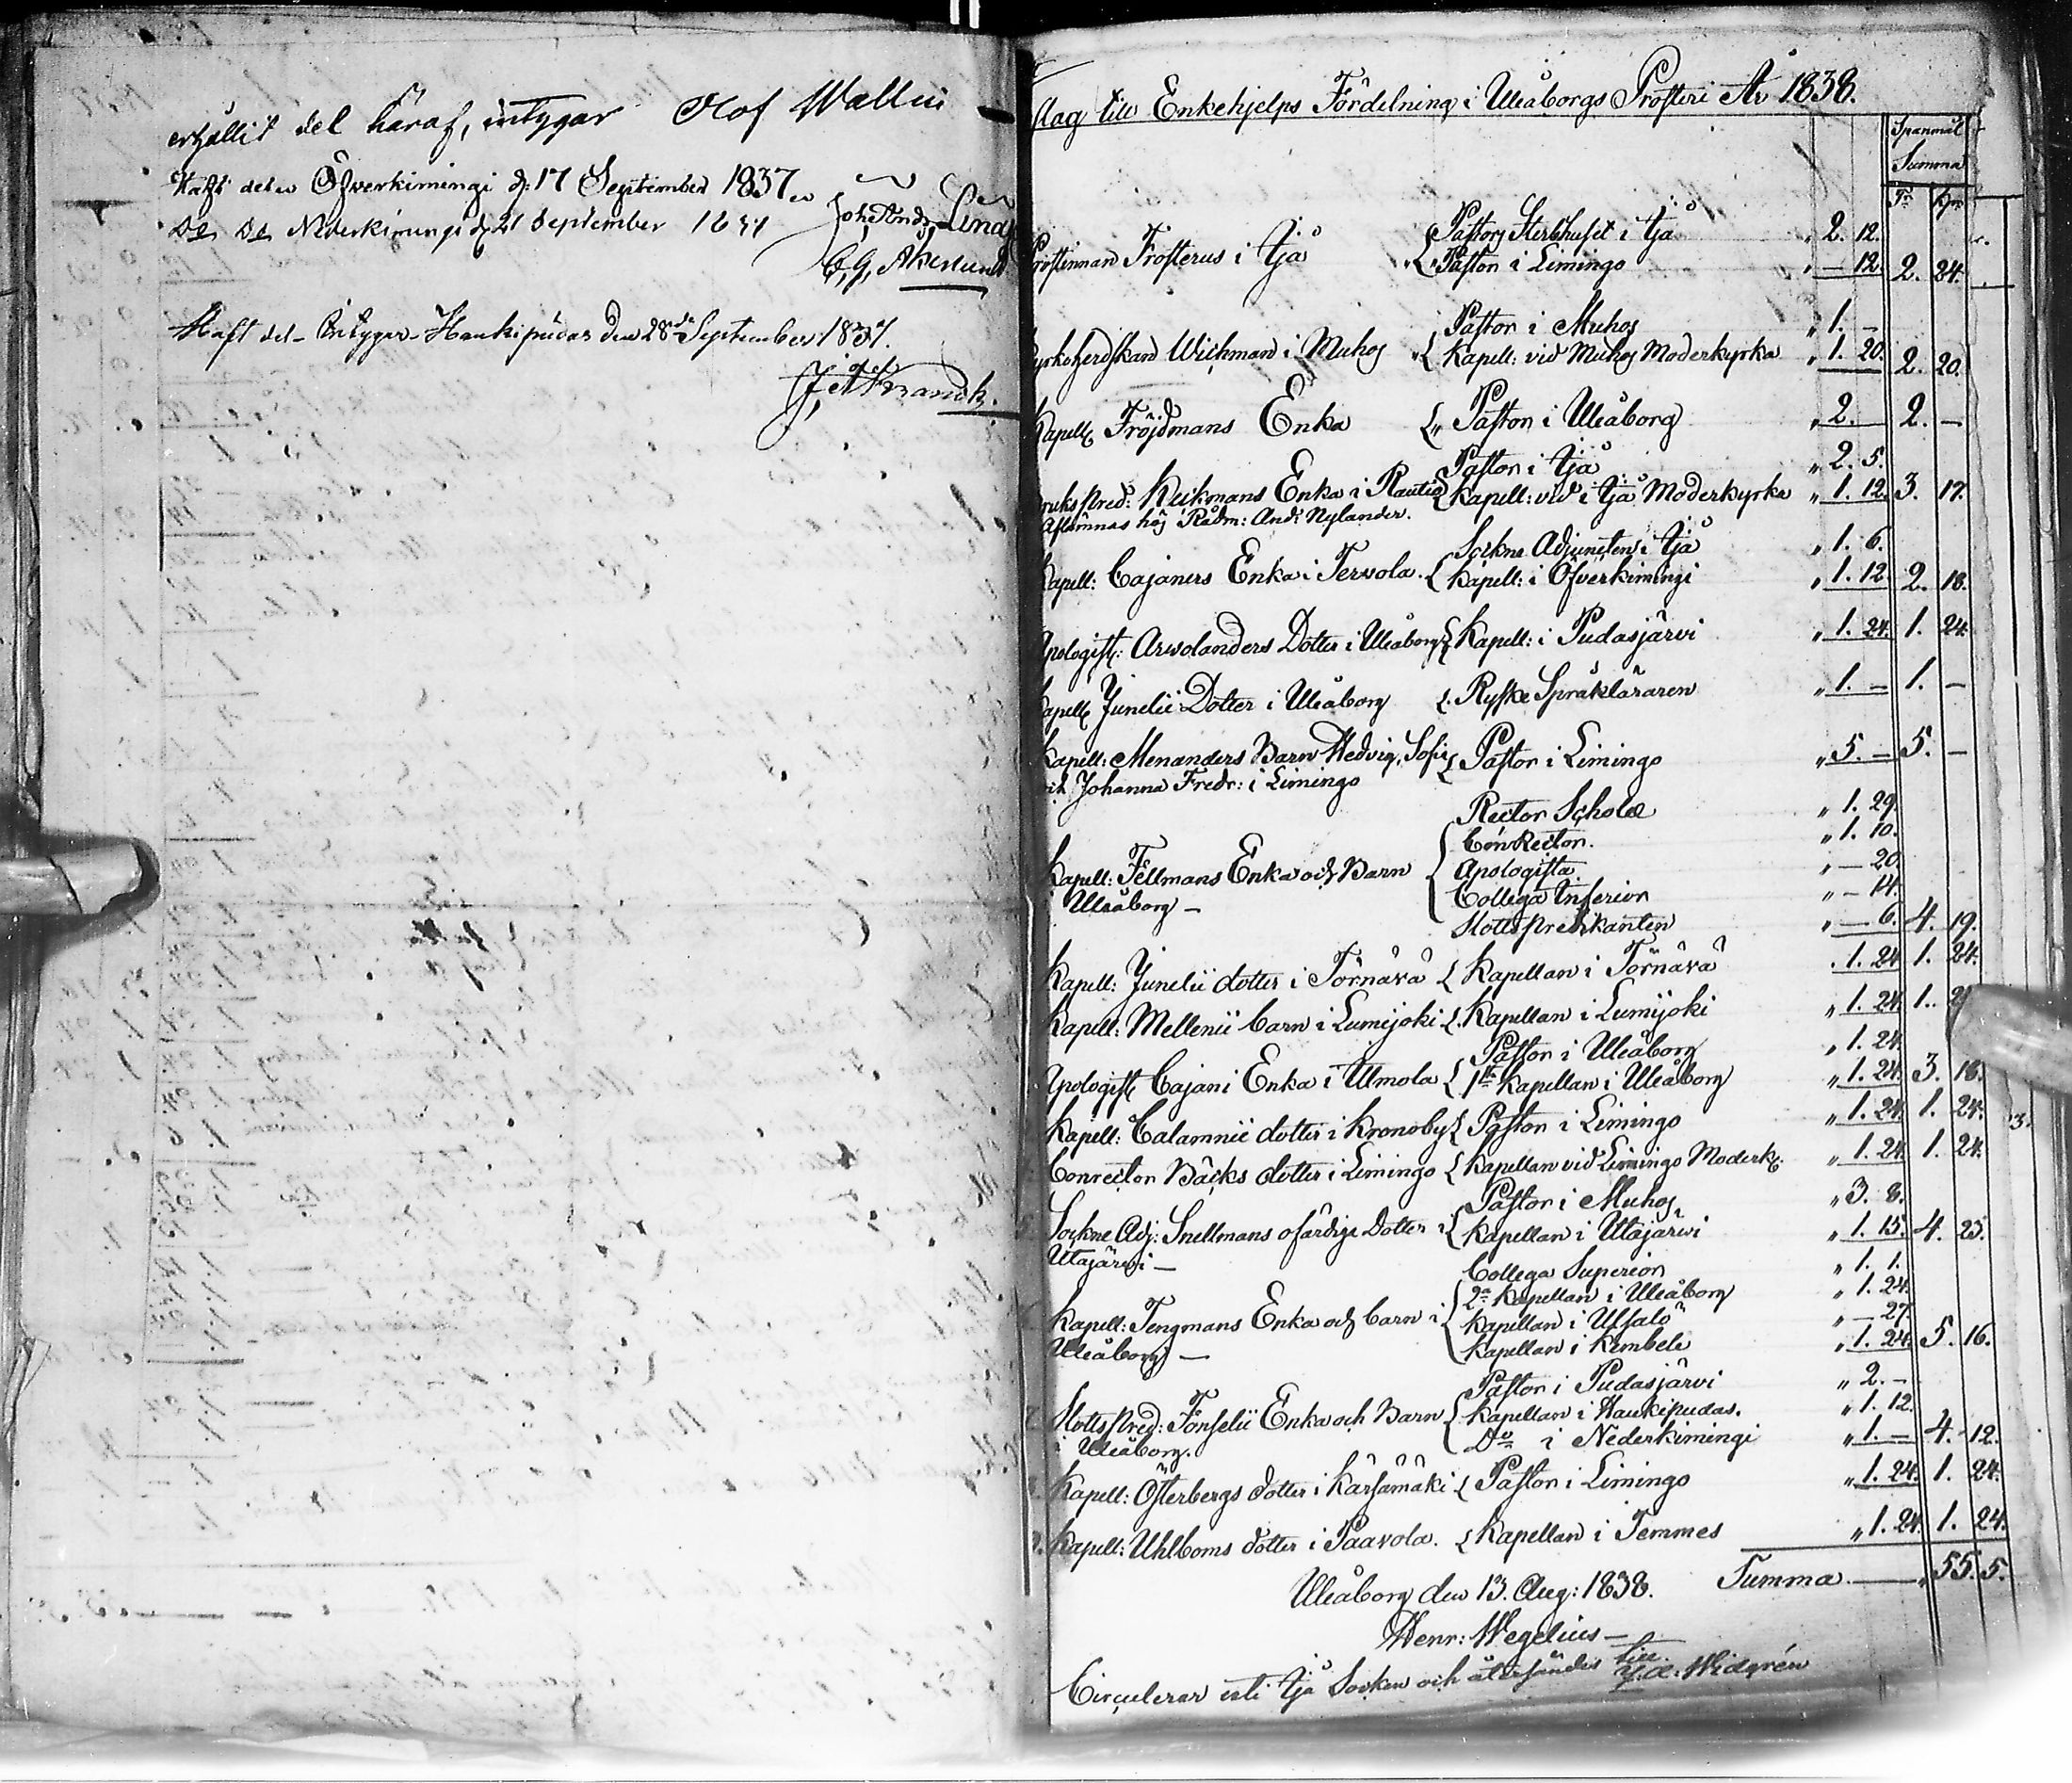 erhållit del häraf, intygar Olof Wallin
Haft del Öfverkimingi d: 17 September 1837
Do Do Nederkimingi d 21 September 1837 Joh: Andr: Lind
C, G, Åkerlund
Haft del Intygar Haukipudas den 28de September 1837.
J. Ad. Franck.
slag till Enkehjelps Fördelning i Uleåborgs Prosteri År 1838.
Spanmål
Summa
Tr Kpr
Prostinnan Frosterus i Ijå
Pastors Sterbhuset i Ijå „ 2. 12.
Pastor i Limingo „ — 12. 2. 24.
yrkoherdskan Wichman i Muhos
Pastor i Muhos „ 1. —
Kapell: vid Muhos Moderkyrka „ 1. 20. 2. 20.
Kapell. Fröjdmans Enka { „ Pastor i Uleåborg „ 2. 2. —
Pastor i Ijå „ 2. 5.
ruks Pred: Keckmans Enka i Rautio { Kapell: vid i Ijå Moderkyrka „ 1. 12. 3. 17.
Aflämnas hos Rådm: And: Nylander.
Sockne Adjuncten i Ijå „ 1. 6.
Kapell: Cajaners Enka i Tervola. { Kapell: i Öfverkimingi „ 1. 12. 2. 18.
Apologist: Arwolanders Dotter i Uleåborg { Kapell: i Pudasjärvi „ 1. 24. 1. 24.
Kapell. Junelii Dotter i Uleåborg { Ryske Språkläraren „ 1. — 1. —
Kapell: Menanders Barn Hedvig, Sofie { Pastor i Limingo „ 5. — 5. —
och Johanna Fredr: i Limingo
Rector Scholæ „ 1. 29.
ConRector. „ 1. 10.
Kapell: Fellmans Enka och Barn { Apologista „ — 20.
i Uleåborg — Collega Inferior „ — 14.
Slottspredikanten „ — 6. 4. 19.
Kapell: Junelii dotter i Törnävä { Kapellan i Törnävä „ 1. 24. 1. 24.
Kapell: Mellenii barn i Lumijoki { Kapellan i Lumijoki „ 1. 24. 1.
Pastor i Uleåborg „ 1. 24.
Apologist. Cajani Enka i Ilmola { 1sta Kapellan i Uleåborg „ 1. 24. 3. 16.
Kapell: Calamnii dotter i Kronoby { Pastor i Limingo „ 1. 24. 1. 24.
Conrector Bäcks dotter i Limingo { Kapellan vid Limingo Moderk. „ 1. 24. 1. 24.
Pastor i Muhos, „ 3. 8.
Sockne Adj: Snellmans ofärdige Dotter i { Kapellan i Utajärwi „ 1. 15. 4. 23.
Utajärwi —
Collega Superior „ 1. 1.
2a Kapellan i Uleåborg „ 1. 24.
Kapell: Tengmans Enka och barn i { Kapellan i Ulfsalö „ — 27.
Uleåborg — Kapellan i Kembele „ 1. 24. 5. 16.
Pastor i Pudasjärvi „ 2. —
Slotts Pred: Fonselii Enka och Barn { Kapellan i Haukipudas. „ 1. 12.
i Uleåborg. Do i Nederkimingi „ 1. — 4. 12.
Kapell: Österbergs dotter i Kärsämäki { Pastor i Limingo „ 1. 24. 1. 24.
Kapell: Uhlboms dotter i Paavola. { Kapellan i Temmes „ 1. 24. 1. 24.
Summa — „ 55. 5.
Uleåborg den 13. Aug: 1838.
Henr: Wegelius —
Circulerar inti Ijå Socken och återsändes till
J: A: Widgrén